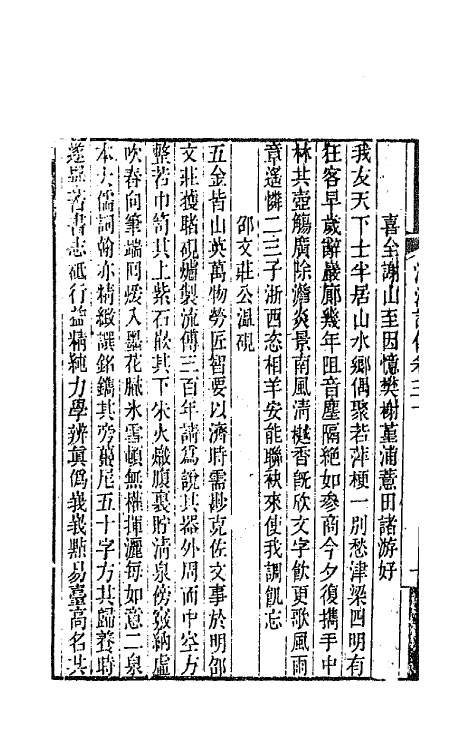 喜全謝山至因憶樊榭堇浦薏田諸游好
我友天下士半居山水鄉偶聚若萍梗一別愁津梁四明有
狂客早歲辭巖廊幾年阻音塵隔絕如參商今夕復攜手中
林共壺觴廣除澹炎景南風清樾香旣欣文字飲更歌風雨
章遙憐二三子浙西恣相羊安能聯袂來使我調飢忘
邵文莊公温硯
五金皆山英萬物勞匠智要以濟時需尠克佐文事於明邵
文莊獲貽硯爐製流傳三百年請爲說其器外周而中空方
整若巾笥其上紫石嵌其下朱火熾腹裏貯清泉傍竅納虛
吹春向筆端回煖入墨花脉氷雪頓無權揮灑每如意二泉
本大儒詞翰亦精緻譔銘鐫其旁蠆尼五十字方其歸養時
遂專著書志砥行益精純力學辨眞僞峩峩點易臺高名共